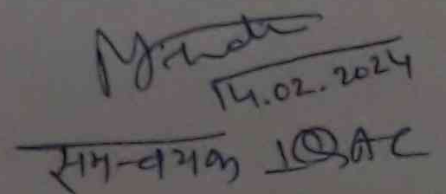 14.02.2024
समन्वयक IQAC